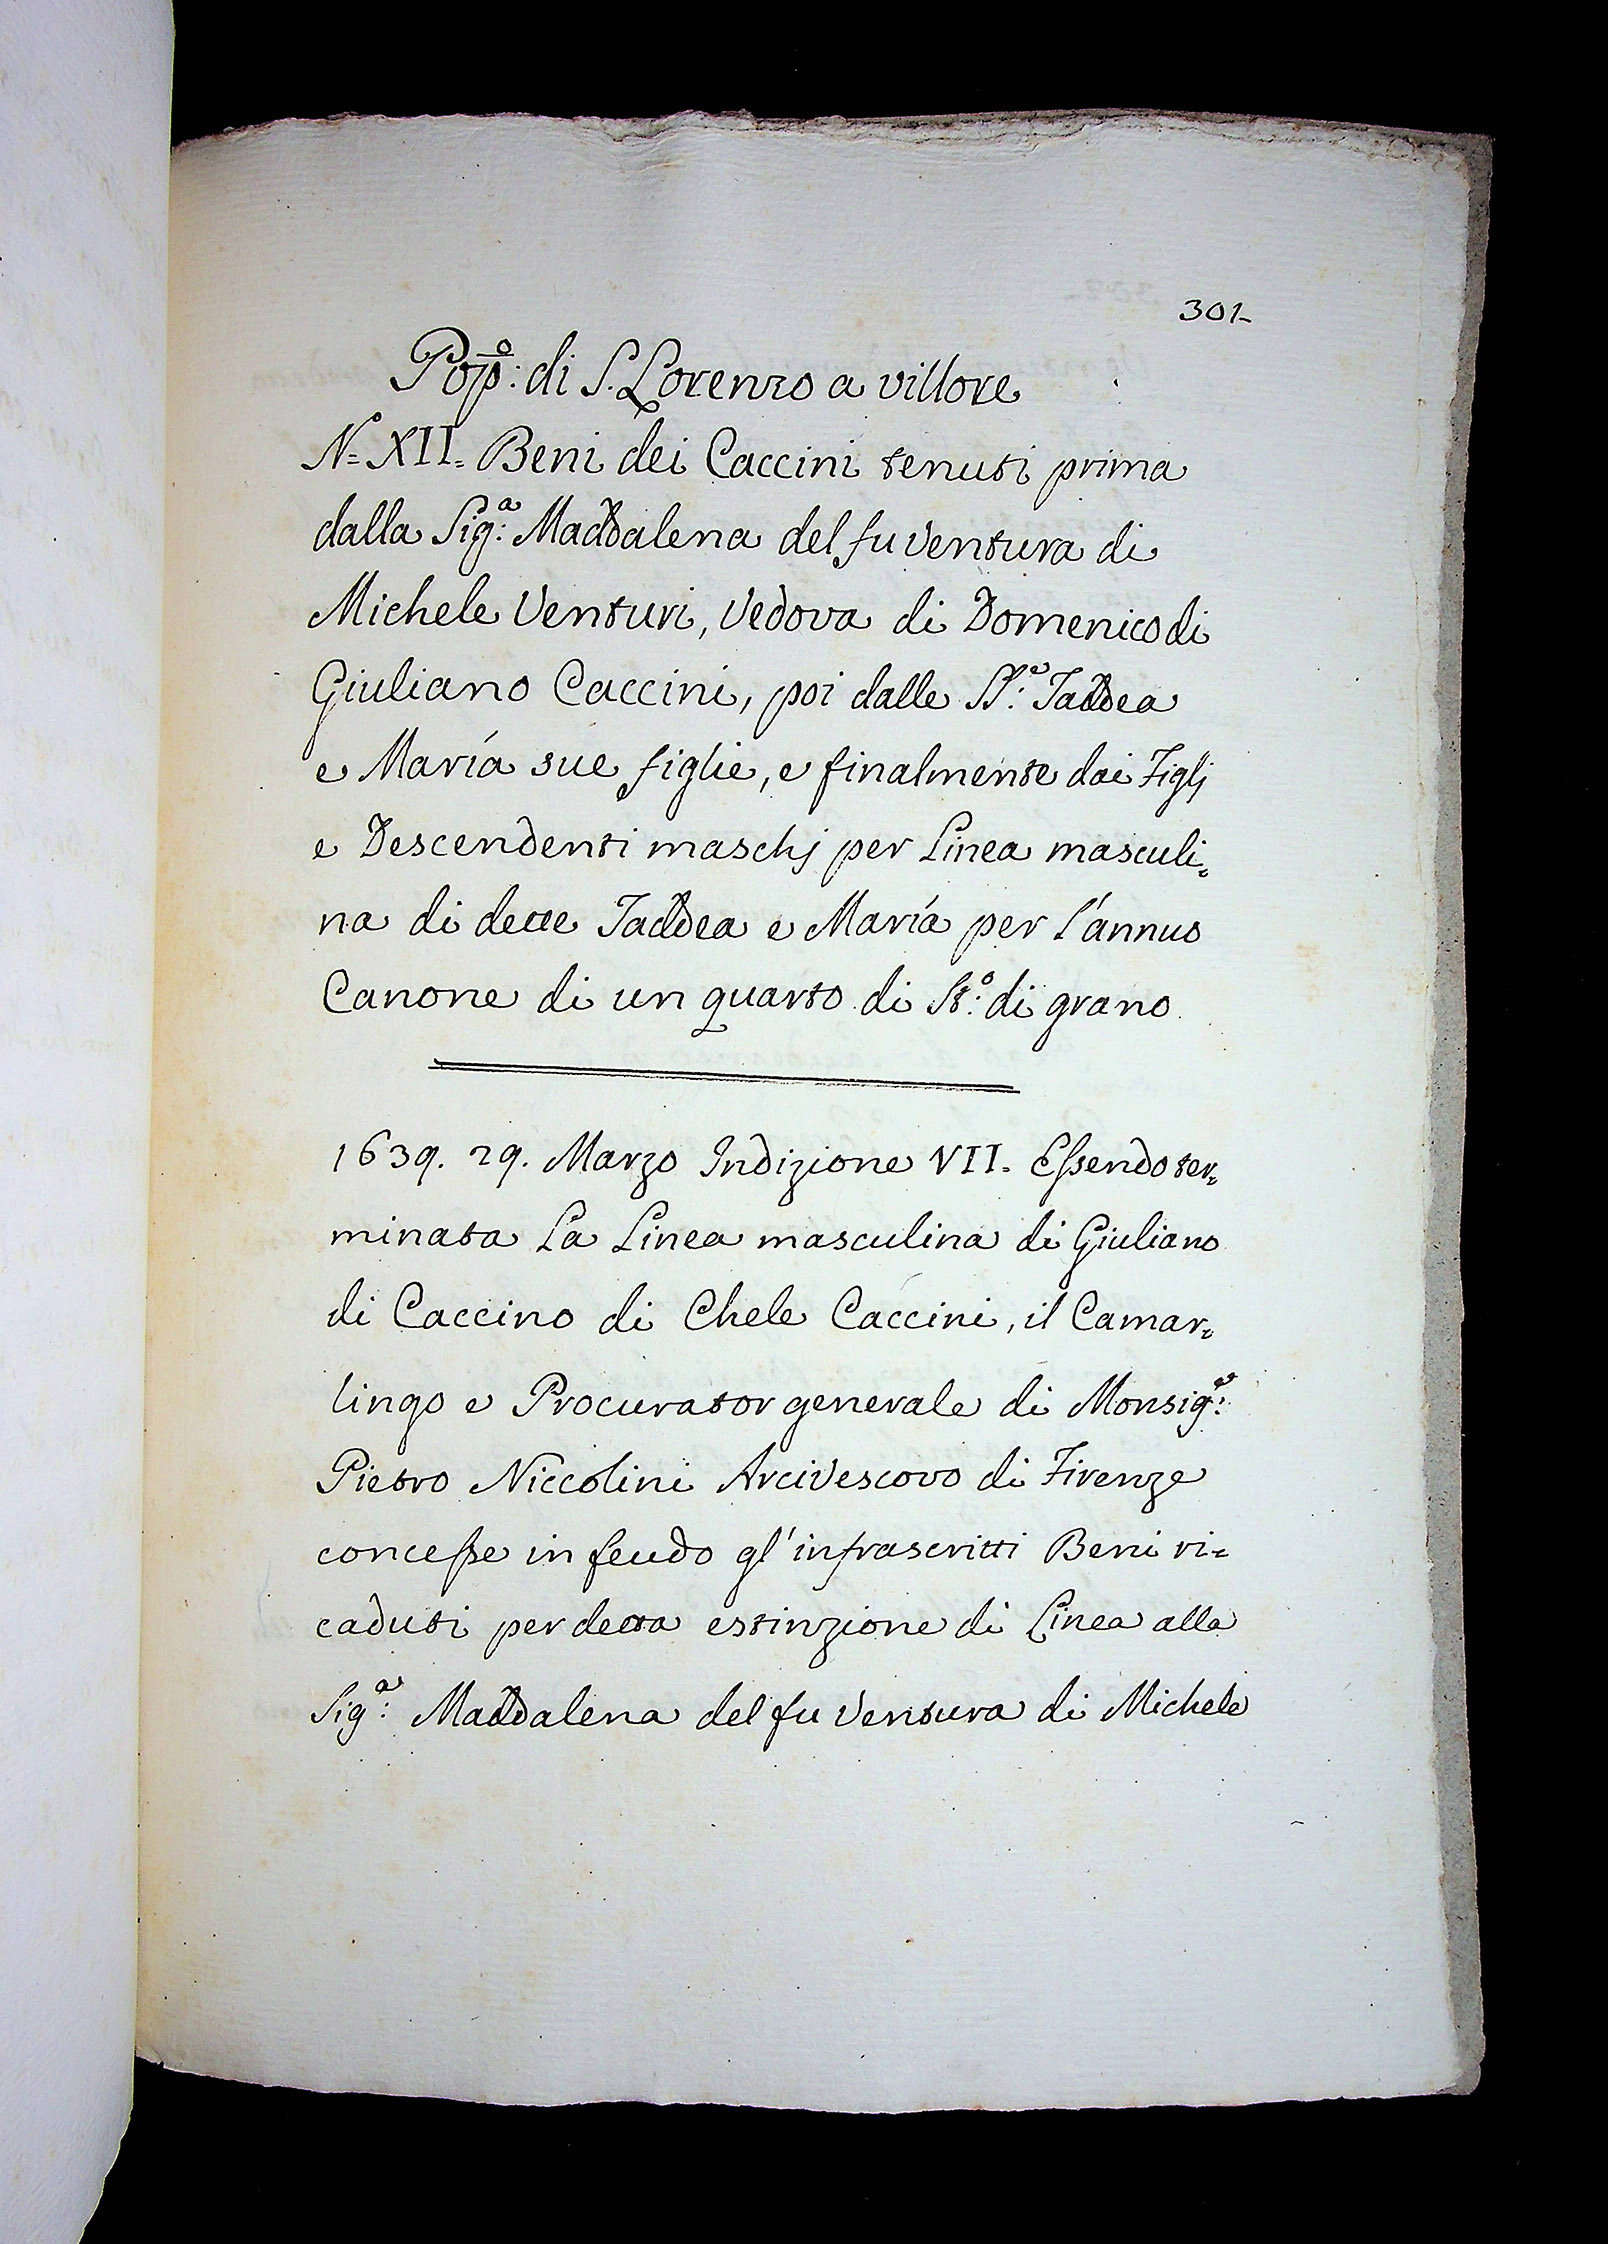 301-
Pop̅º: di S. Lorenzo a villore
N= XII= Beni dei Caccini tenuti prima
dalla Sig.ª: Maddalena del fu Ventura di
Michele Venturi, Vedova di Domenico di
Giuliano Caccini, poi dalle SS.e: Taddea
e María sue figlie, e finalmente dai Figlj
e Descendenti maschj per Linea masculi=
na di dette Taddea e María per l'annuo
Canone di un quarto di St.º: di grano
1639. 29. Marzo Indizione VII. Essendo ter=
minata La Linea masculina di Giuliano
di Caccino di Chele Caccini, il Camar=
lingo e Procurator generale di Monsig.e:
Pietro Niccolini Arcivescovo di Firenze
concesse in feudo gl'infrascritti Beni ri=
caduti per detta estinzione di Linea alla
Sig.ª: Maddalena del fu Ventura di Michele